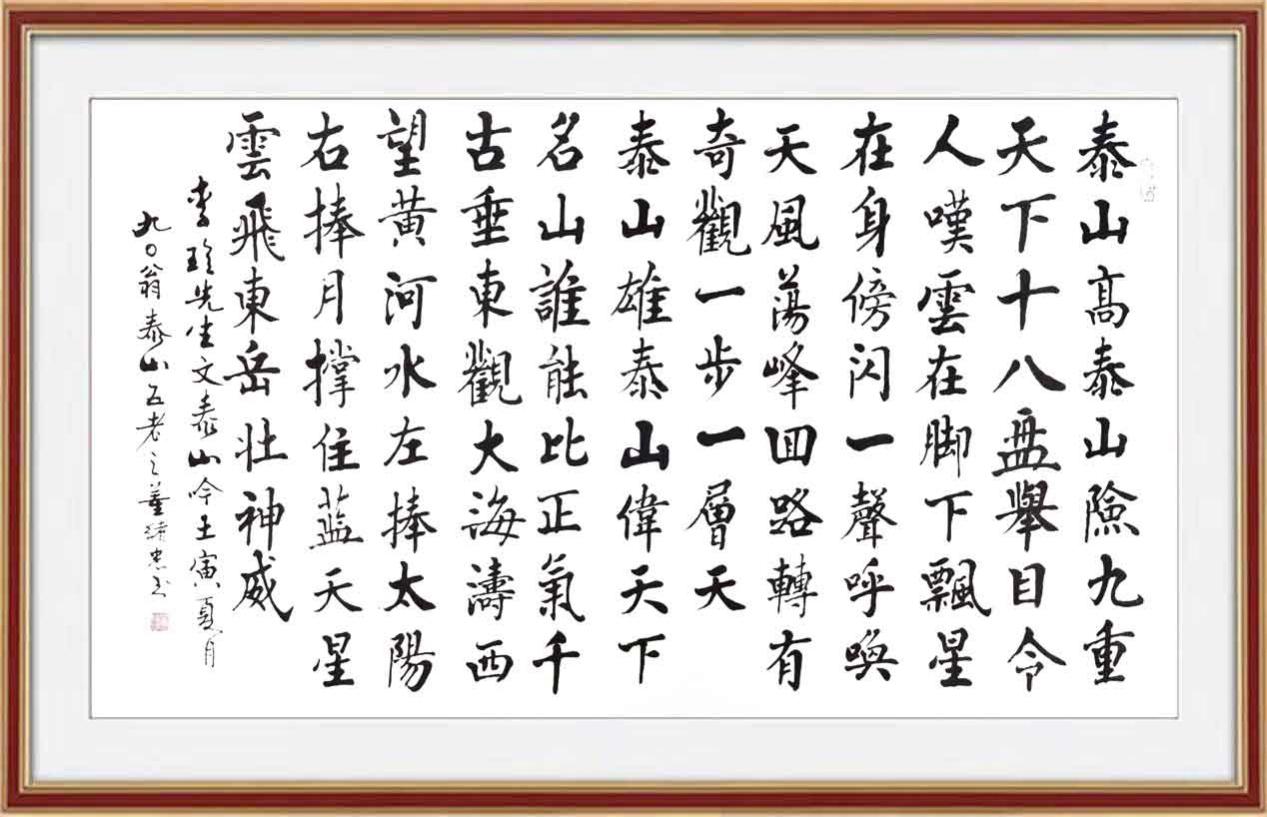 泰山高泰山險九重
天下十八盤舉目令
人嘆雲在脚下飄星
在身傍闪一聲呼喚
天風蕩峰回路轉有
奇觀一步一層天
泰山雄泰山偉天下
名山誰能比正氣千
古垂東觀大海濤西
望黄河水左捧太陽
右捧月撑住蓝天星
雲飛東岳壯神威
李珍先生文泰山吟壬寅夏月
九〇翁泰山五老之董緒忠书